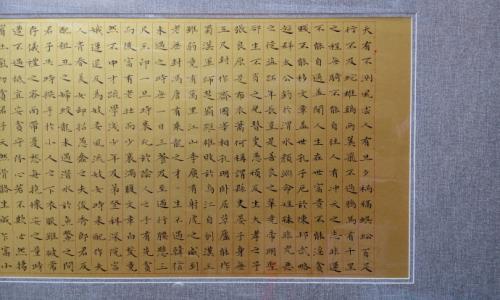 天有不測風雲人有旦夕禍福蜈蚣百足
行不及蛇雄鷄兩翼飛不過鴉馬有千里
之程無騎不能自往人有沖天之志非運
不能自通蓋聞人生在世富貴不能淫貧
賤不能移文章蓋世孔子厄於陳邦武略
超群太公釣於渭水顏淵命短殊非兇惡
之徒盜跖年長豈是善良之輩堯帝明聖
卻生不肖之兒瞽叟愚頑反生大孝之子
張良原是布衣蕭何稱謂縣吏晏子身無
五尺封作齊國宰相孔明臥居草廬能作
蜀漢軍師楚霸雖雄敗於烏江自刎漢王
雖弱竟有萬里江山李廣有射虎之威到
老無封馮唐有乘龍之才一生不遇韓信
未遇之時無一日三餐及至遇行腰懸三
尺玉印一旦時衰死於陰人之手有先貧
而後富有老壯而少衰滿腹文章白髮竟
然不中才疏學淺少年及第登科深院宮
娥運退反為妓妾風流妓女時來配作夫
人青春美女卻招愚蠢之夫俊秀郎君反
配粗丑之婦蛟龍未遇潛水於魚鱉之間
君子失時拱手於小人之下衣服雖破常
存儀禮之容面帶憂愁每抱懷安之量時
遭不遇只宜安貧守份心若不欺必然揚
眉吐氣初貧君子天然骨骼生成乍富小